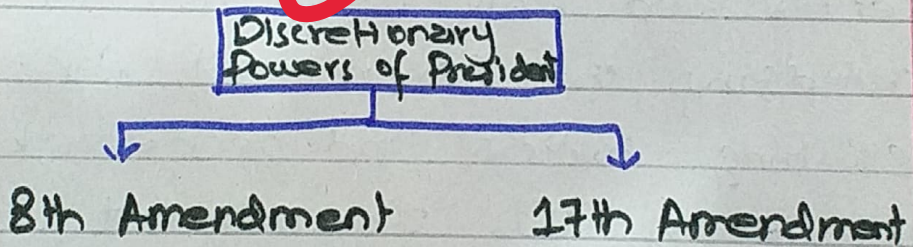 Discretionary
Powers of President
8th Amendment
17th Amendment